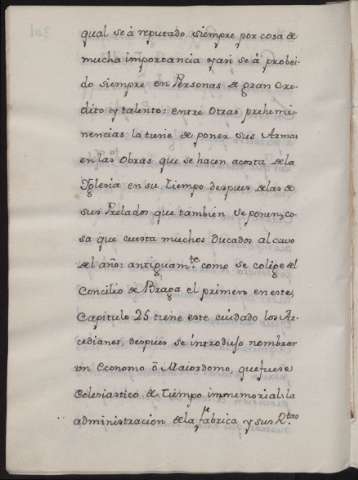 qual se á reputado siempre por cosa de
mucha importancia y asi se á probei-
do siempre en Personas de gran Cre-
dito y talento: entre Otras prehemi-
nencias la tiene de poner sus Armas
en las Obras que se hacen acosta de la
Yglesia en su tiempo despues de las de
sus Prelados que tambien se ponen, co-
sa que cuesta muchos Ducados al cavo
del año: antiguam.te como se colige del
Concilio de Braga el primero en este
Capitulo 25 tiene este cuidado los Ar-
cedianes, despues se introdujo nombrar
un Economo ō Maiordomo, que fuese
Eclesiastico de Tiempo immemorial la
administracion de la fabrica, y sus R.tas